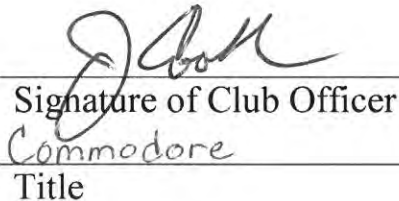 Signature of Club Officer
Commodore
Title